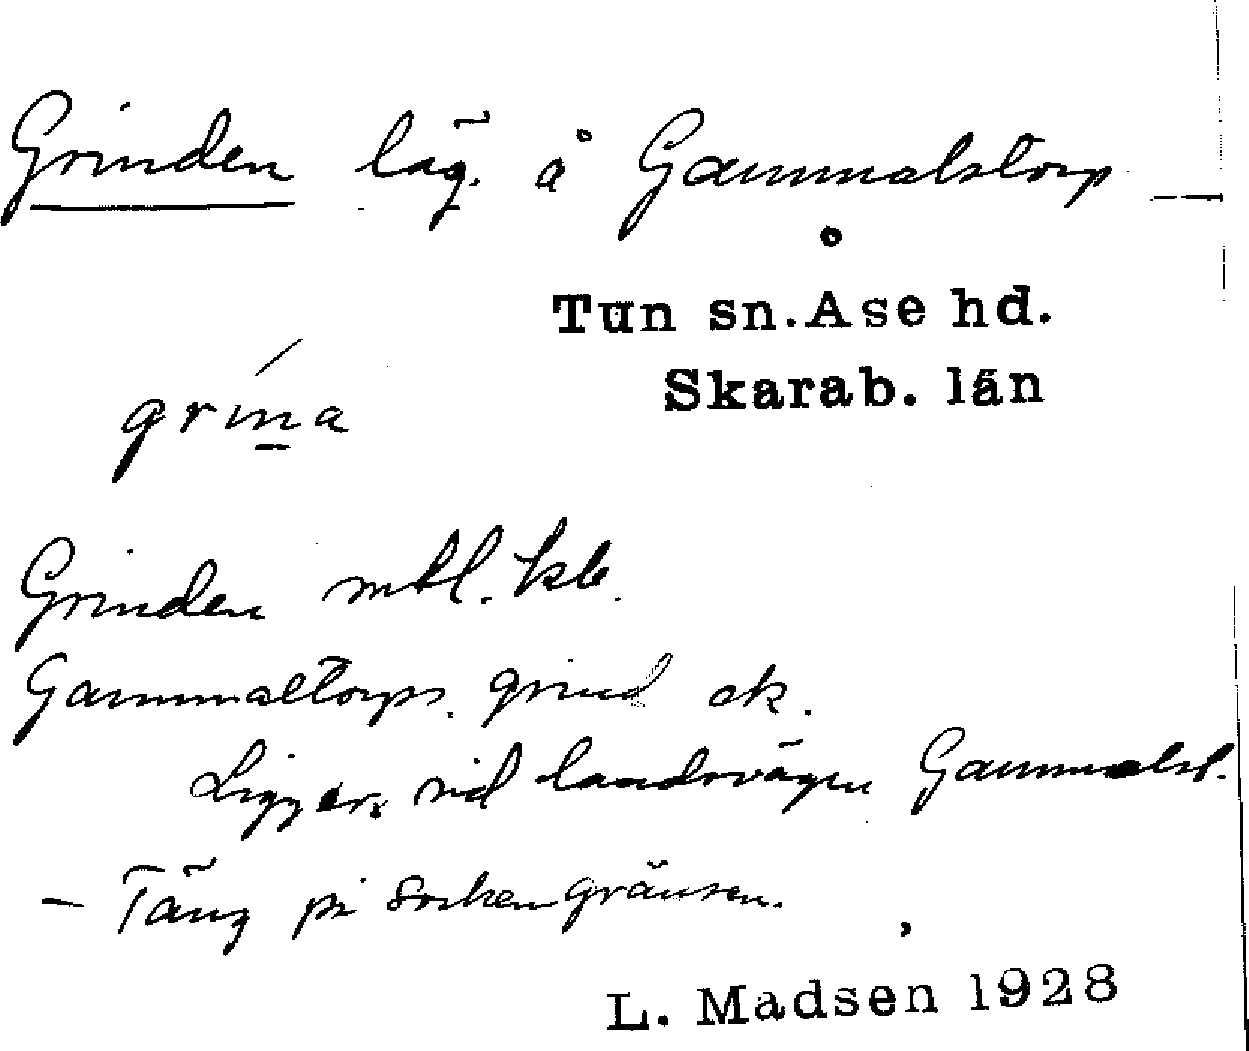 Grinden läg. å Gammalstorp —
Tun sn. Åse hd.
Skarab. län
grína
Grinden mtl. kb.
Gammaltorps. grind ek.
Ligger vid landsvägen Gammalst.
– Täng på sockengränsen.
L. Madsen 1928